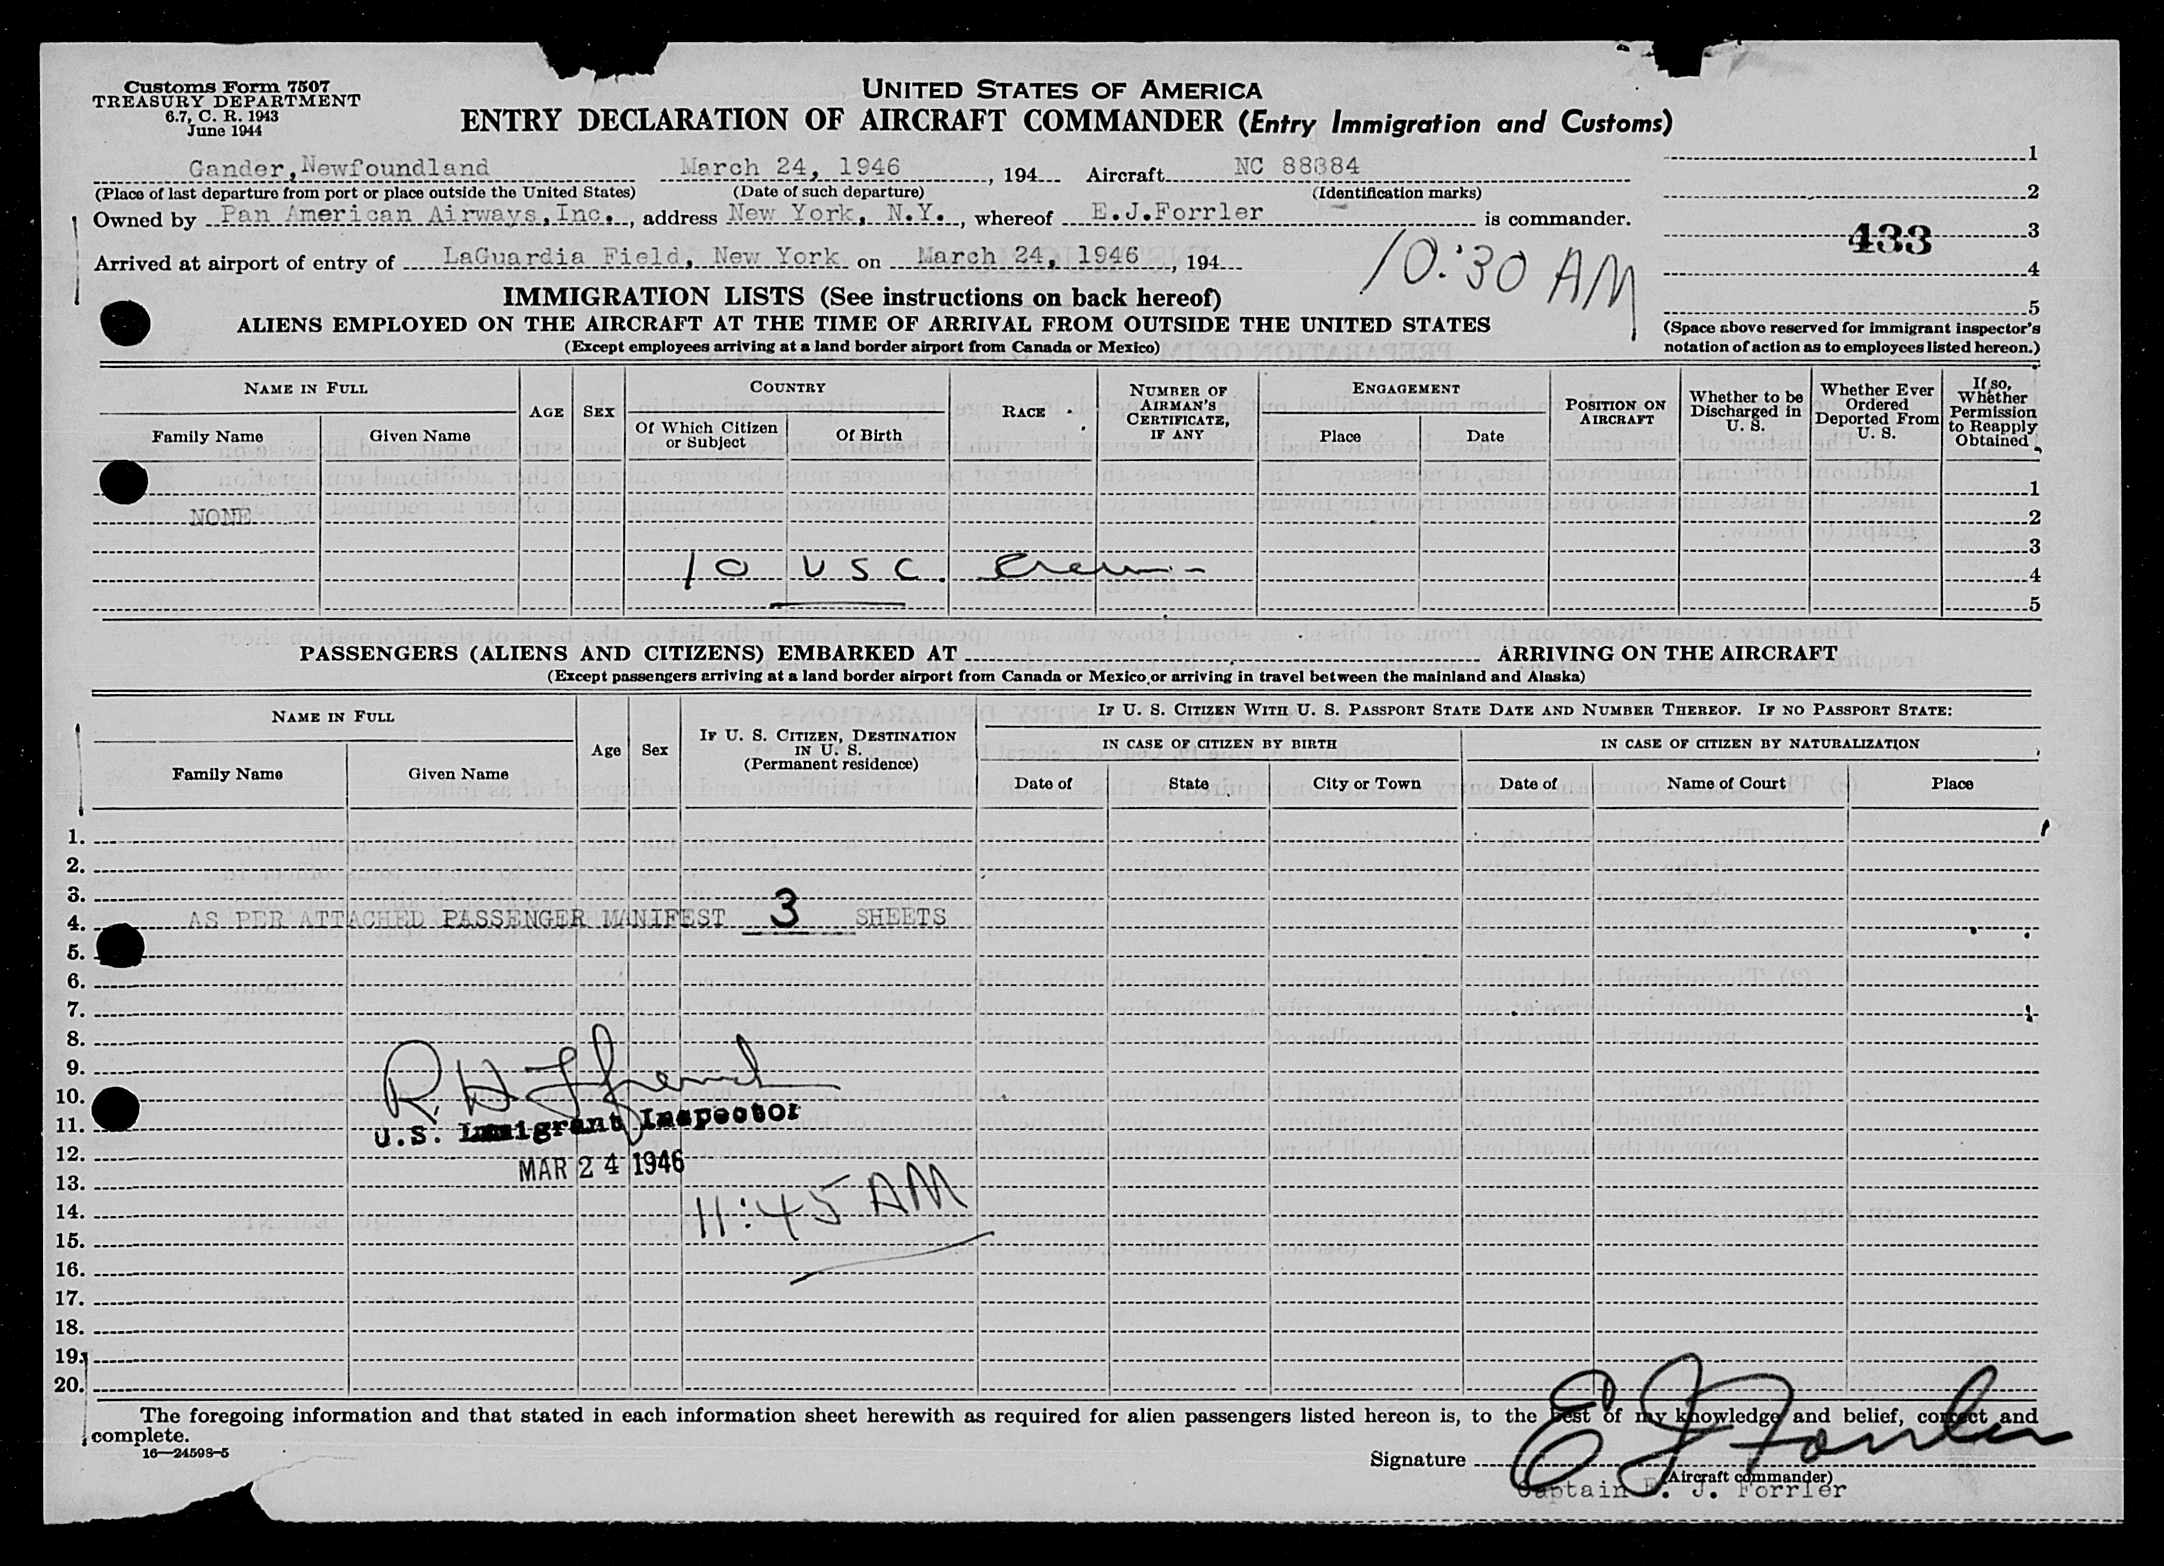 Customs Form 7507
TREASURY DEPARTMENT
6.7, C. R. 1943
June 1944
UNITED STATES OF AMERICA
ENTRY DECLARATION OF AIRCRAFT COMMANDER (Entry Immigration and Customs)
Gander, Newfoundland March 24, 1946, 194 Aircraft NC 88384
(Place of last departure from port or place outside the United States) (Date of such departure) (Identification marks)
Owned by Pan American Airways, Inc., address New York, N.Y., whereof E.J.Forrler is commander.
Arrived at airport of entry of LaGuardia Field, New York on March 24, 1946, 194
10:30 AM
1
2
433 3
4
5
(Space above reserved for immigrant inspector's
notation of action as to employees listed hereon.)
IMMIGRATION LISTS (See instructions on back hereof)
ALIENS EMPLOYED ON THE AIRCRAFT AT THE TIME OF ARRIVAL FROM OUTSIDE THE UNITED STATES
(Except employees arriving at a land border airport from Canada or Mexico)
NAME IN FULL
Family Name Given Name
AGE SEX
COUNTRY
Of Which Citizen or Subject Of Birth
RACE
NUMBER OF AIRMAN'S CERTIFICATE, IF ANY
ENGAGEMENT
Place Date
POSITION ON AIRCRAFT
Whether to be Discharged in U. S.
Whether Ever Ordered Deported From U. S.
If so, Whether Permission to Reapply Obtained
1
NONE 2
3
10 USC. Crew 4
5
PASSENGERS (ALIENS AND CITIZENS) EMBARKED AT ARRIVING ON THE AIRCRAFT
(Except passengers arriving at a land border airport from Canada or Mexico, or arriving in travel between the mainland and Alaska)
NAME IN FULL
Family Name Given Name
Age Sex
IF U. S. CITIZEN, DESTINATION IN U. S. (Permanent residence)
IF U. S. CITIZEN WITH U. S. PASSPORT STATE DATE AND NUMBER THEREOF. IF NO PASSPORT STATE:
IN CASE OF CITIZEN BY BIRTH IN CASE OF CITIZEN BY NATURALIZATION
Date of State City or Town Date of Name of Court Place
1.
2.
3.
4. AS PER ATTACHED PASSENGER MANIFEST 3 SHEETS
5.
6.
7.
8.
9.
10. R. H. French
11. U.S. Immigrant Inspector
12. MAR 24 1946
13.
14. 11:45 AM
15.
16.
17.
18.
19.
20.
The foregoing information and that stated in each information sheet herewith as required for alien passengers listed hereon is, to the best of my knowledge and belief, correct and
complete.
16—24598-5
Signature E J Forrler
(Aircraft commander)
Captain E. J. Forrler